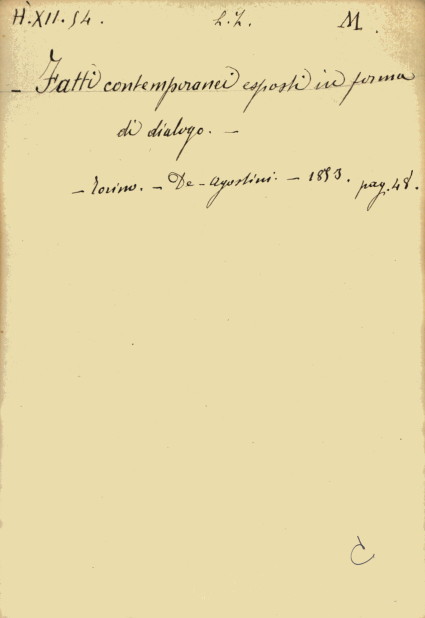 H.XII.54. L.L. M.
- Fatti contemporanei esposti in forma
di dialogo. -
- Torino. - De-Agostini. - 1853. pag. 48.
C